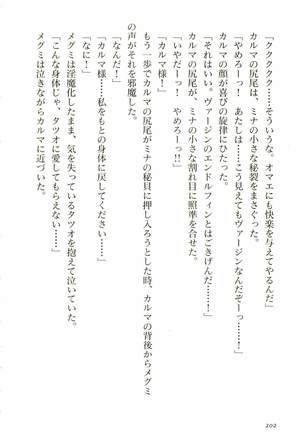 「クククク……そういうな。オマエにも快楽を与えてやるんだ」
カルマの尻尾は、ミナの小さな秘裂をまさぐった。
「やめろーっ！　あたしは……こう見えてもヴァージンなんだぞーっ……」
カルマの顔が喜びの旋律にひたった。
「それはいい。ヴァージンのエンドルフィンとはごきげんだ……！」
カルマの尻尾が、ミナの小さい割れ目に照準を合せた。
「いやだーっ！　やめろーっ!!」
「カルマ様！」
もう一歩でカルマの尻尾がミナの秘貝に押し入ろうとした時、カルマの背後からメグミ
の声がそれを邪魔した。
「なんだ！」
「カルマ様……私をもとの身体に戻してください……」
「なに！」
メグミは淫魔化したまま、気を失っているタツオを抱えて泣いていた。
「こんな身体じゃ、タツオに愛してもらえない……」
メグミは泣きながらカルマに近づいた。
202